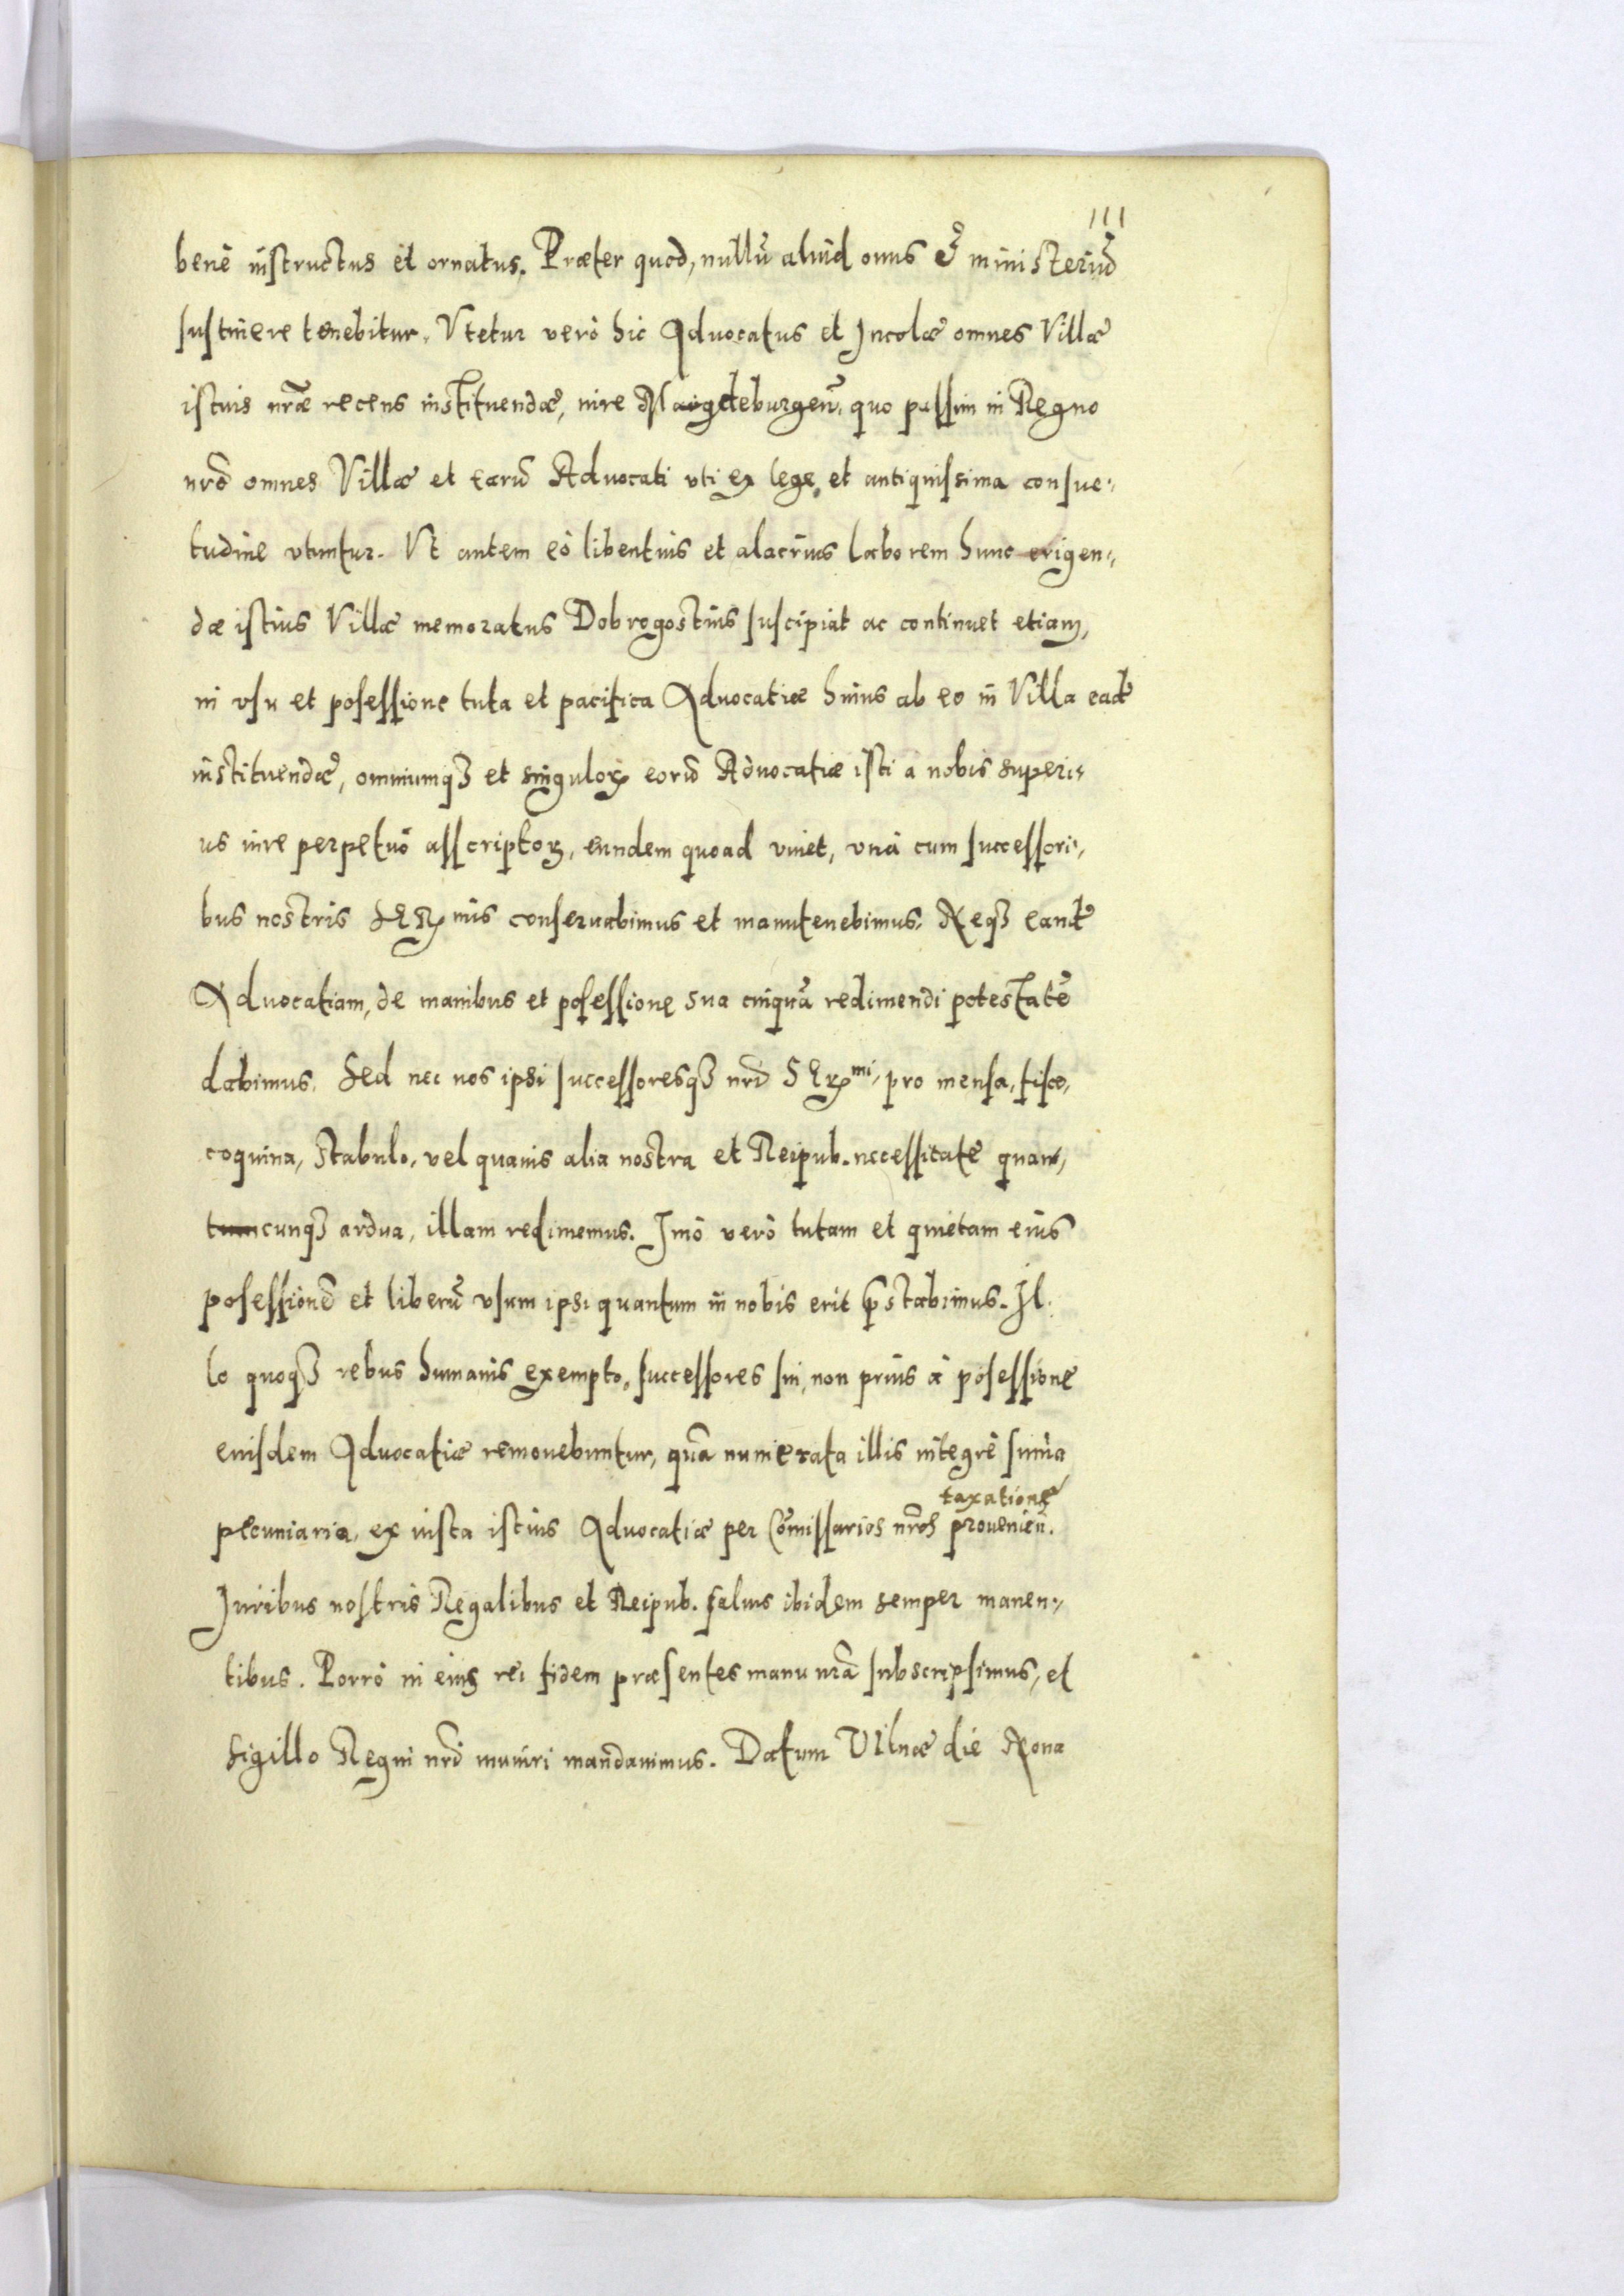 111
benè instructus et ornatus. Præter quod, nullũ aliud onus & ministeriũ
sustinere tenebitur. Vtetur verò hic Aduocatus et Incolæ omnes Villæ
istius nræ recens instituendæ, iure Maigdeburgeñ. quo passim in Regno
nrõ omnes Villæ et earũ Aduocati vti ex lege et antiquissima consue-
tudine vtuntur. Vt autem eò libentius et alacrius laborem hunc erigen-
dæ istius Villæ memoratus Dobrogostius suscipiat ac continuet etiam,
in vsu et posessione tuta et pacifica Aduocatiæ huius ab eo in Villa eadẽ
instituendæ, omniumqꝫ et singuloꝝ eorũ Aduocatiæ isti a nobis superi-
us iure perpetuò asscriptoꝝ, eundem quoad viuet, vnà cum successori-
bus nostris SERmis conseruabimus et manutenebimus. Neqꝫ eandẽ
Aduocatiam, de manibus et posessione sua cuiquã redimendi potestatẽ
dabimus. Sed nec nos ipsi successoresqꝫ nrĩ SERmi pro mensa, fisco,
coquina, stabulo, vel quauis alia nostra et Reipub. necessitate quan-
tumcunqꝫ ardua, illam redimemus. Imò verò tutam et quietam eius
posessionẽ et liberũ vsum ipsi quantum in nobis erit p̃stabimus. Il-
lo quoqꝫ rebus humanis exempto, successores sui, non prius à posessione
eiusdem Aduocatiæ remouebuntur, quã numerata illis integrè sum̃a
taxatione
pecuniaria, ex iusta istius Aduocatiæ per Com̃issarios nrõs prouenieñ.
Iuribus nostris Regalibus et Reipub. saluis ibidem semper manen-
tibus. Porrò in eius rei fidem præsentes manu nrã subscripsimus, et
sigillo Regni nrĩ muniri mandauimus. Datum Vilnæ die Nona